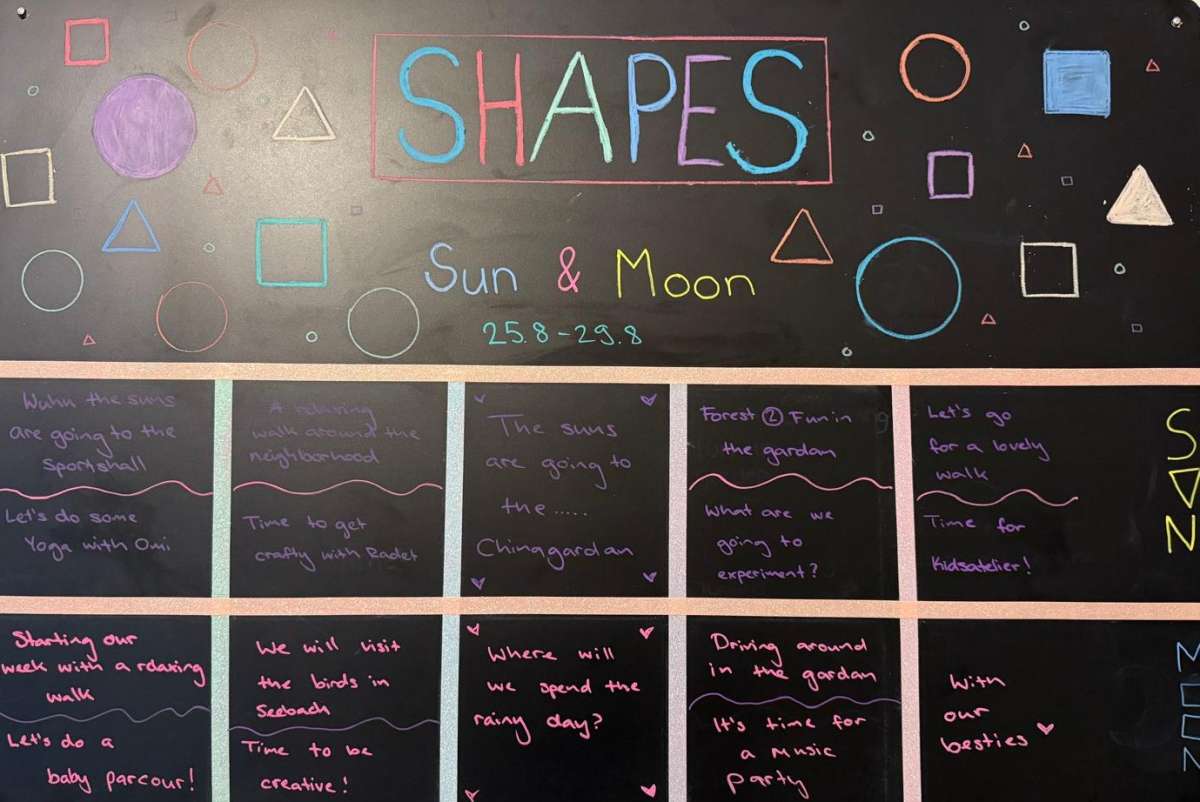 SHAPES
Sun & Moon
25.8-29.8
Wuhu the suns
are going to the
Sportshall
Let's do some
Yoga with Omi
A relaxing
walk around the
neighborhood
Time to get
crafty with Radet
The suns
are going to
the.....
Chinggardan
Forest ② Fun in
the gardan
What are we
going to
experiment?
Let's go
for a lovely
walk
Time for
Kidsatelier!
SUN
Starting our
week with a relaxing
walk
Let's do a
baby parcour!
We will visit
the birds in
Seebach
Time to be
creative!
Where will
we spend the
rainy day?
Driving around
in the gardan
It's time for
a Music
party
With
our
besties
MOON